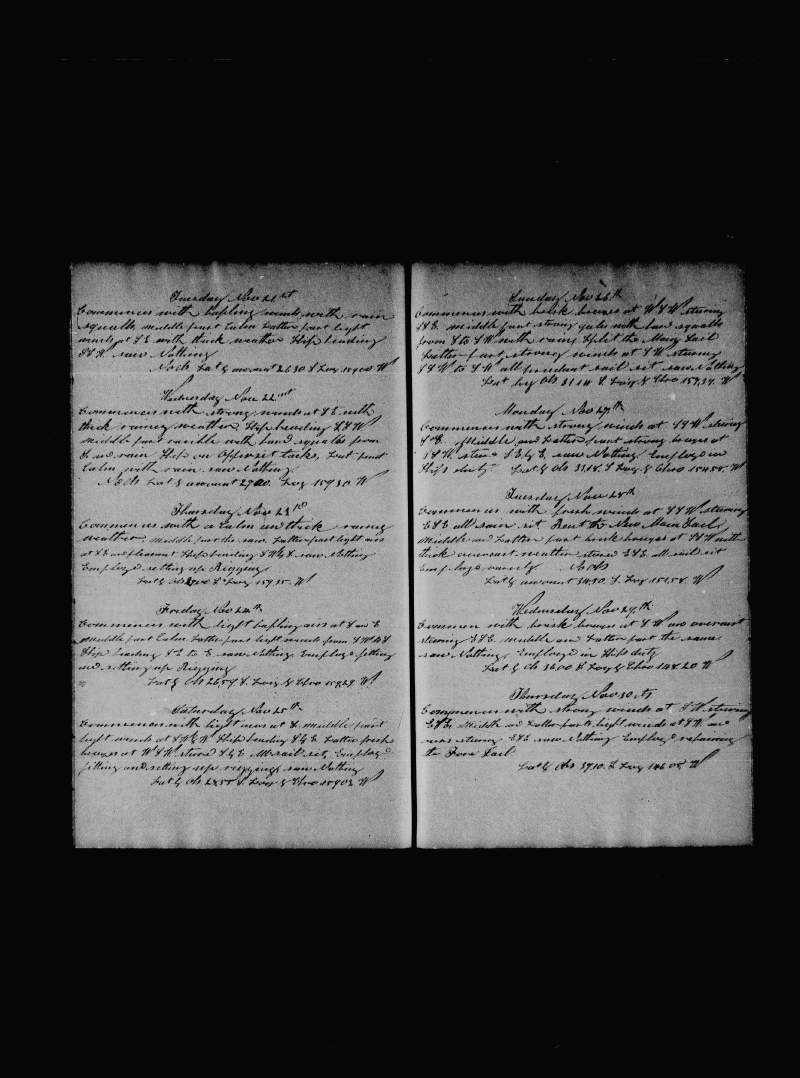 Tuesday Nov 21st
Commences with bafling winds with rain
squalls middle part Calm Latter part light
winds at S E with thick weather Ship heading
S S W saw Nothing
No ob Lat by account 26.30 S Long 159.00 W
Wednesday Nov 22nd
Commences with strong winds at S E with
thick rainey weather Ship heading S S W
Middle part varible with hard squalls from
and rain Ship on oppersit tacks, Last part
Calm with rain saw Nothing
No ob Lat by account Long 159.30 W
Thursday Nov 23rd
Commences with a Calm and thick rainey
weather middle part the same Latter part light airs
at S E and pleasant Ship heading saw Nothing
Employed setting up Rigging
Lat by Ob S Long 159.35 W
Friday Nov 24th
Commences with light bafling airs at S and E
Middle part Calm Latter part light winds from
Ship heading to E saw Nothing Employd fitting
and setting up Rigging
Lat by Ob 26.54 S. Long by Chro 159.29 W
Saturday Nov 25th
Commences with light airs at S. middle part
light winds at Ship heading Latter fresh
breezes at W S W steard S by E All sail set, Employd
fitting and setting up rigging saw Nothing
Lat by Ob 28.55 S. Long by Chro 159.03 W
Sunday Nov 26th
Commences with brisk breezes at W S W stearing
middle part strong gales with hard squalls
from S to S W with rain Split the Main Sail
Latter part strong winds at S W stearing
all prudent sail set saw Nothing
Lat by Ob 31.14 S Long by Chro 157.34 W
Monday Nov 27th
Commences with strong winds at S S W stearing
Middle and Latter part strong breezes at
S S W steard S E by E saw Nothing Employd in
Ships duty Lat by Ob 33.18 S Long by Chro 154.58 W
Tuesday Nov 28th
Commences with fresh winds at S S W stearing
E S E all sain set Bent the New Main Sail
Middle and Latter part brisk breezes at S S W with
thick overcast weather steard E S E all sail set
Employd variously No Ob
Lat by account 34.30 S. Long 151.58 W
Wednesday Nov 29th
Commences with brisk breezes at S W and overcast
stearing E S E middle and Latter part the same
saw Nothing Employd in Ships duty
Lat by Ob 36.00 S Long by Chro 148.20 W
Thursday Nov 30th
Commences with strong winds at S W stearing
E S E Middle and Latter parts light winds at S W and
stearing E S E saw Nothing Employd repairing
to Fore Sail
Lat by Ob 37.10 S Long 146.05 W